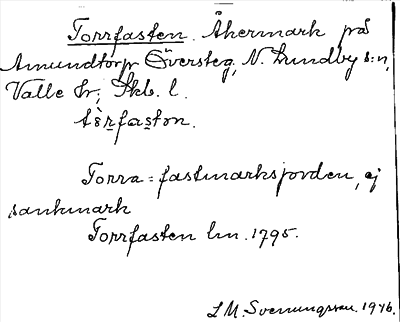 Torrfasten. Åkermark på
Amundtorp Översteg, N. Lundby s:n,
Valle hr; Skb. l.
tòrfaston.
Torra = fastmarksjorden, ej
sankmark
Torrfasten lm. 1795.
L M. Svenungsson. 1946.